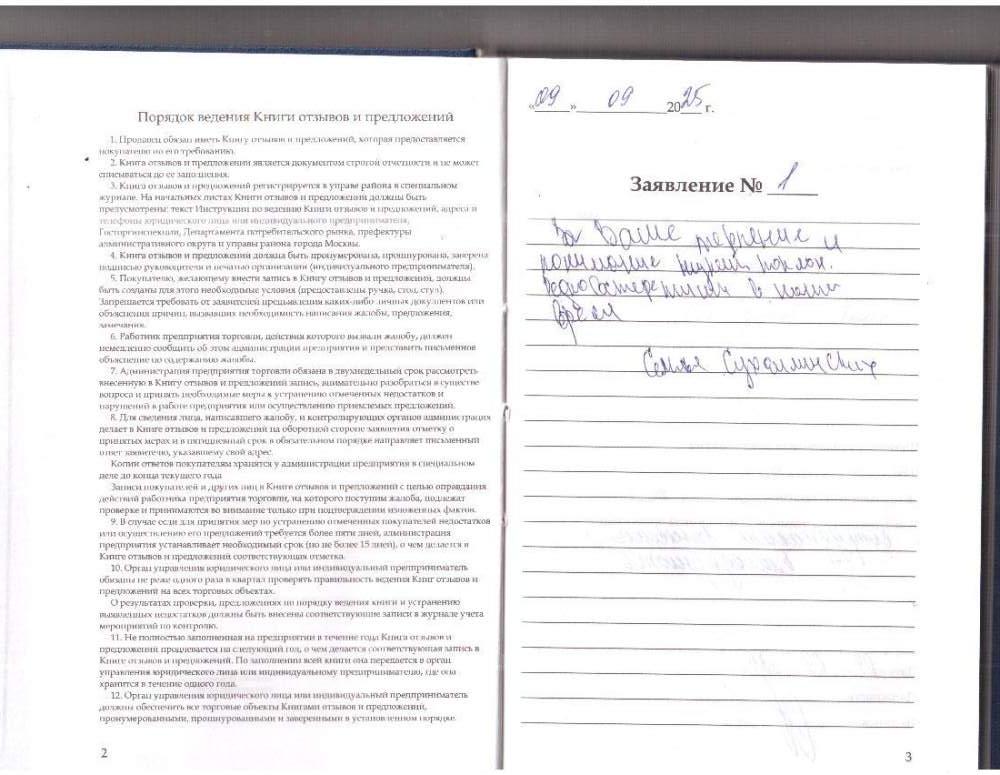 Порядок ведения Книги отзывов и предложений
1. Продавец обязан иметь Книгу отзывов и предложений, которая предоставляется
покупателю по его требованию.
2. Книга отзывов и предложений является документом строгой отчетности и не может
списываться до ее заполнения.
3. Книга отзывов и предложений регистрируется в управе района в специальном
журнале. На начальных листах Книги отзывов и предложений должны быть
предусмотрены: текст Инструкции по ведению Книги отзывов и предложений, адреса и
телефоны юридического лица или индивидуального предпринимателя,
Госторгинспекции, Департамента потребительского рынка, префектуры
административного округа и управы района города Москвы.
4. Книга отзывов и предложений должна быть пронумерована, прошнурована, заверена
подписью руководителя и печатью организации (индивидуального предпринимателя).
5. Покупателю, желающему внести запись в Книгу отзывов и предложений, должны
быть созданы для этого необходимые условия (предоставлены ручка, стол, стул).
Запрещается требовать от заявителей предъявления каких-либо личных документов или
объяснения причин, вызвавших необходимость написания жалобы, предложения,
замечания.
6. Работник предприятия торговли, действия которого вызвали жалобу, должен
немедленно сообщить об этом администрации предприятия и представить письменное
объяснение по содержанию жалобы.
7. Администрация предприятия торговли обязана в двухнедельный срок рассмотреть
внесенную в Книгу отзывов и предложений запись, внимательно разобраться в существе
вопроса и принять необходимые меры к устранению отмеченных недостатков и
нарушений в работе предприятия или осуществлению приемлемых предложений.
8. Для сведения лица, написавшего жалобу, и контролирующих органов администрация
делает в Книге отзывов и предложений на оборотной стороне заявления отметку о
принятых мерах и в пятидневный срок в обязательном порядке направляет письменный
ответ заявителю, указавшему свой адрес.
Копии ответов покупателям хранятся у администрации предприятия в специальном
деле до конца текущего года
Записи покупателей и других лиц в Книге отзывов и предложений с целью оправдания
действий работника предприятия торговли, на которого поступим жалоба, подлежат
проверке и принимаются во внимание только при подтверждении изложенных фактов.
9. В случае если для принятия мер по устранению отмеченных покупателей недостатков
или осуществлению его предложений требуется более пяти дней, администрация
предприятия устанавливает необходимый срок (но не более 15 дней), о чем делается в
Книге отзывов и предложений соответствующая отметка.
10. Орган управления юридического лица или индивидуальный предприниматель
обязаны не реже одного раза в квартал проверять правильность ведения Книг отзывов и
предложений на всех торговых объектах.
О результатах проверки, предложениях по порядку ведения книги и устранению
выявленных недостатков должны быть внесены соответствующие записи в журнале учета
мероприятий по контролю.
11. Не полностью заполненная на предприятии в течение года Книга отзывов и
предложений продлевается на следующий год, о чем делается соответствующая запись в
Книге отзывов и предложений. По заполнении всей книги она передается в орган
управления юридического лица или индивидуальному предпринимателю, где она
хранится в течение одного года.
12. Орган управления юридического лица или индивидуальный предприниматель
должны обеспечить все торговые объекты Книгами отзывов и предложений,
пронумерованными, прошнурованными и заверенными в установленном порядке.
2
«09» 09 2025 г.
Заявление № 1
За Ваше терпение и
понимание
в наши
Семья
3